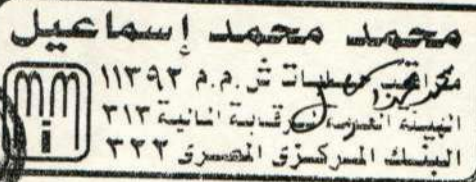 محمد محمد إسماعيل
محاسب ش.م.م ١١٣٩٣
الهيئة العامة للرقابة المالية ٣١٣
البنك المركزى المصرى ٣٢٢
mm
i